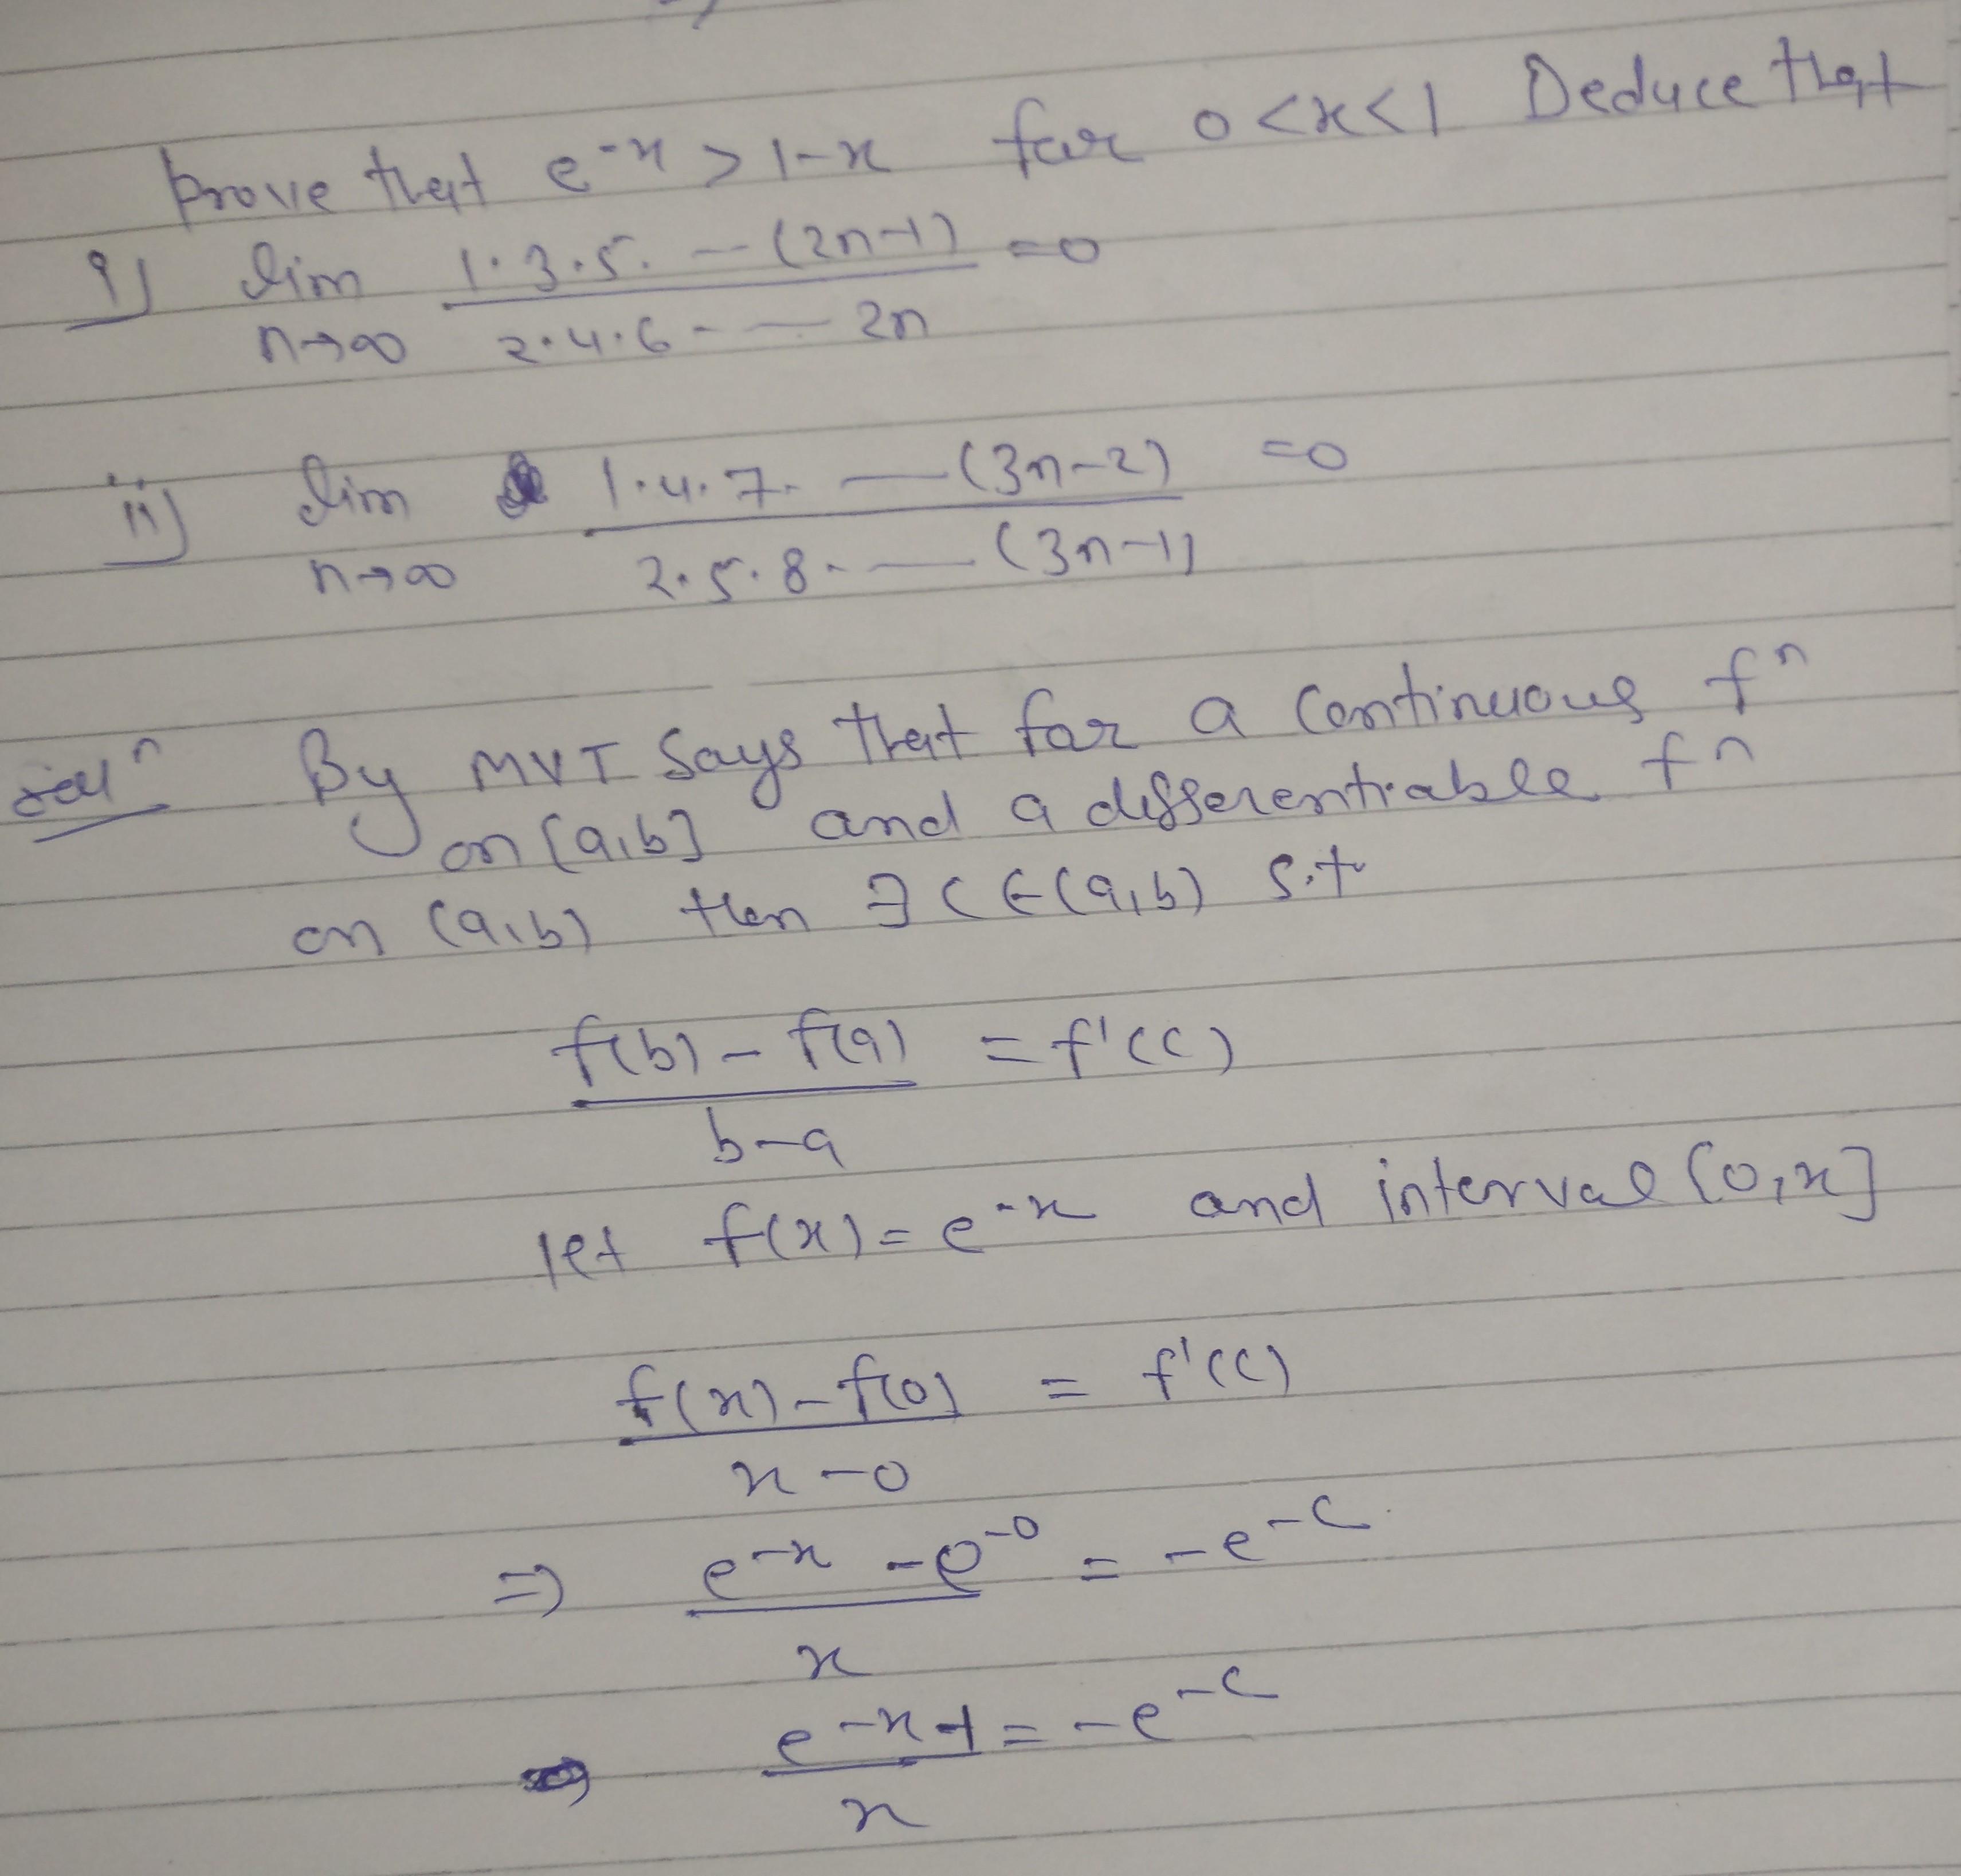 Prove that e^-x > 1-x for 0<x<1 Deduce that
i) lim 1·3·5· --(2n-1) =0
n→∞ 2·4·6 - — 2n
ii) lim 1·4·7· —(3n-2) =0
n→∞ 2·5·8· — (3n-1)
sol^n By MVT Says that for a continuous f^n
on [a,b] and a differentiable f^n
on (a,b) then ∃ c ∈(a,b) s.t
f(b) - f(a) = f'(c)
b-a
let f(x) = e^-x and interval [0,x]
f(x)-f(0) = f'(c)
x-0
⇒ e^-x - e^-0 = -e^-c
x
⇒ e^-x-1 = -e^-c
x